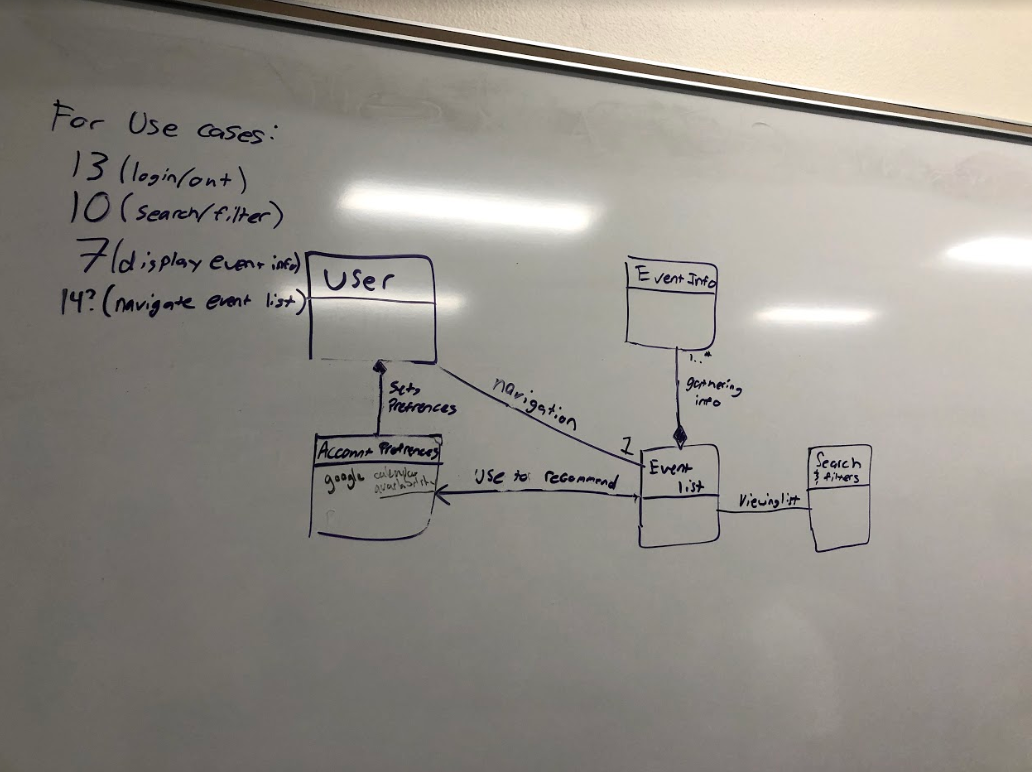 For Use cases:
13 (login/out)
10 (search/filter)
7 (display event info)
14? (navigate event list)
User
Event Info
1..*
gathering
info
Sets
Prefrences
navigation
1
Account Prefrences
google calendar
Use to recommend
Event
list
Viewing list
Search
& filters